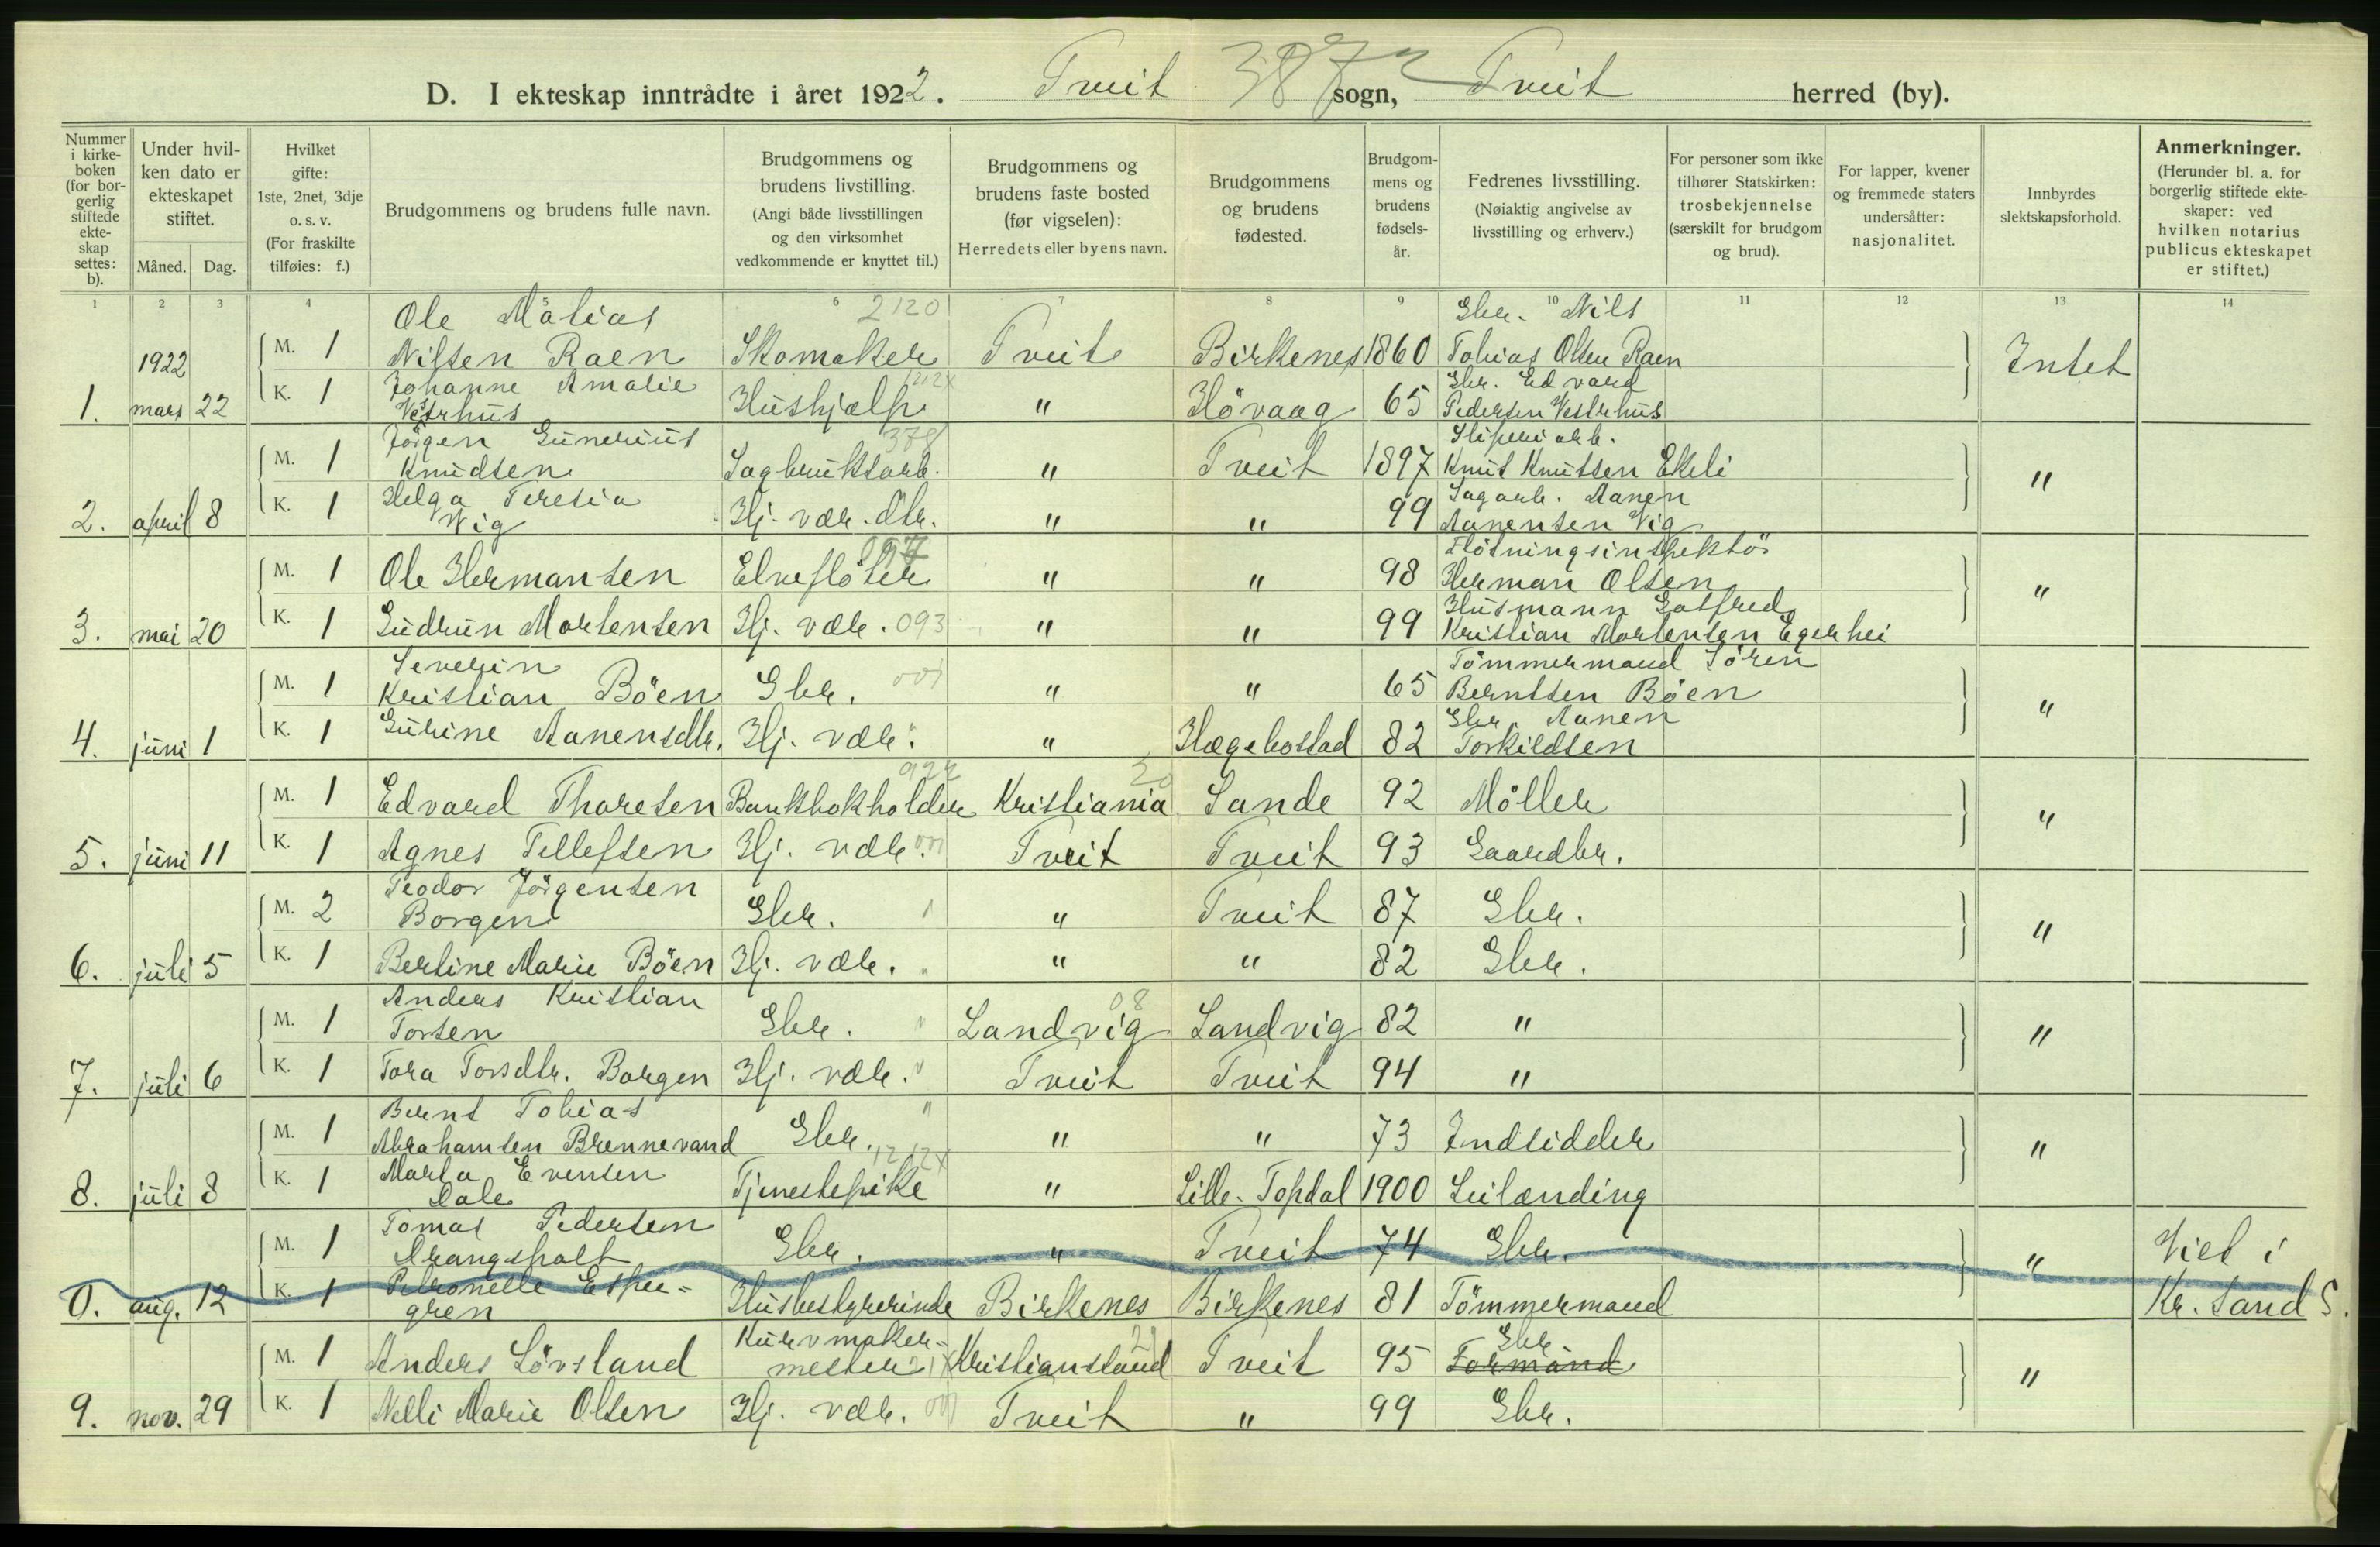 D. I ekteskap inntrådte i året 1922. Tveit 387 sogn, Tveit herred (by).
Nummer i kirke-boken (for bor-gerlig stiftede ekte-skap settes: b).
Under hvil-ken dato er ekteskapet stiftet.
Måned. Dag.
Hvilket gifte: 1ste, 2net, 3dje o. s. v. (For fraskilte tilføies: f.)
Brudgommens og brudens fulle navn.
Brudgommens og brudens livstilling. (Angi både livsstillingen og den virksomhet vedkommende er knyttet til.)
Brudgommens og brudens faste bosted (før vigselen): Herredets eller byens navn.
Brudgommens og brudens fødested.
Brudgom-mens og brudens fødsels-år.
Fedrenes livsstilling. (Nøiaktig angivelse av livsstilling og erhverv.)
For personer som ikke tilhører Statskirken: trosbekjennelse (særskilt for brudgom og brud).
For lapper, kvener og fremmede staters undersåtter: nasjonalitet.
Innbyrdes slektskapsforhold.
Anmerkninger. (Herunder bl. a. for borgerlig stiftede ekte-skaper: ved hvilken notarius publicus ekteskapet er stiftet.)
1 2 3 4 5 6 7 8 9 10 11 12 13 14
Ole Matias 2120 Gbr. Nils
M. 1 Nilsen Raen Skomaker Tveit Birkenes 1860 Tobias Olsen Raen Intet
1922
Johanne Amalie 1212x Gbr. Edvard
1. mars 22 K. 1 Vestrhus Hushjælp " Hövaag 65 Pedersen Vestrhus
Jörgen Gunerius 378 Sliperiarb.
M. 1 Knudsen Sagbruksarb. " Tveit 1897 Knut Knutsen Ekeli "
Helga Teresia Sagarb. Aanen
2. april 8 K. 1 Vig Hj. vær. dtr. " " 99 Aanensen Vig
097 Flötningsinspektör
M. 1 Ole Hermansen Elveflöter " " 98 Herman Olsen "
Husmann Gotfred
3. mai 20 K. 1 Gudrun Mortensen Hj. vær. 093 " " 99 Kristian Mortensen Egerhei
Severin Tömmermand Sören
M. 1 Kristian Böen Gbr. 001 " " 65 Berntsen Böen "
Gbr. Aanen
4. juni 1 K. 1 Gurine Aanensdtr. Hj. vær. " " Hægebostad 82 Torkildsen
922 20
M. 1 Edvard Thoresen Bankbokholder Kristiania Sande 92 Möller "
5. juni 11 K. 1 Agnes Tellefsen Hj. vær. 001 Tveit Tveit 93 Gaardbr.
Teodor Jörgensen
M. 2 Borgen Gbr. 1 " Tveit 87 Gbr. "
6. juli 5 K. 1 Bertine Marie Böen Hj. vær. " " " 82 Gbr.
Anders Kristian 08
M. 1 Torsen Gbr. " Landvig Landvig 82 " "
7. juli 6 K. 1 Tora Torsdtr. Borgen Hj. vær. " Tveit Tveit 94 "
Bernt Tobias "
M. 1 Abrahamsen Brennevand Gbr. " " 73 Indsidder "
Marta Evensen 1212x
8. juli 8 K. 1 Dale Tjenestepike " Lille-Topdal 1900 Leilænding
Tomas Pedersen
M. 1 Drangsholt Gbr. " Tveit 74 Gbr. " Viet i
Petronelle Espe-
0. aug. 12 K. 1 gren Husbestyrerinde Birkenes Birkenes 81 Tömmermand Kr.sand S.
Kurvmaker- 22 Gbr
M. 1 Anders Lövsland mester 21x Kristiansand Tveit 95 Formand "
9. nov. 29 K. 1 Nelli Marie Olsen Hj. vær. 001 Tveit " 99 Gbr.